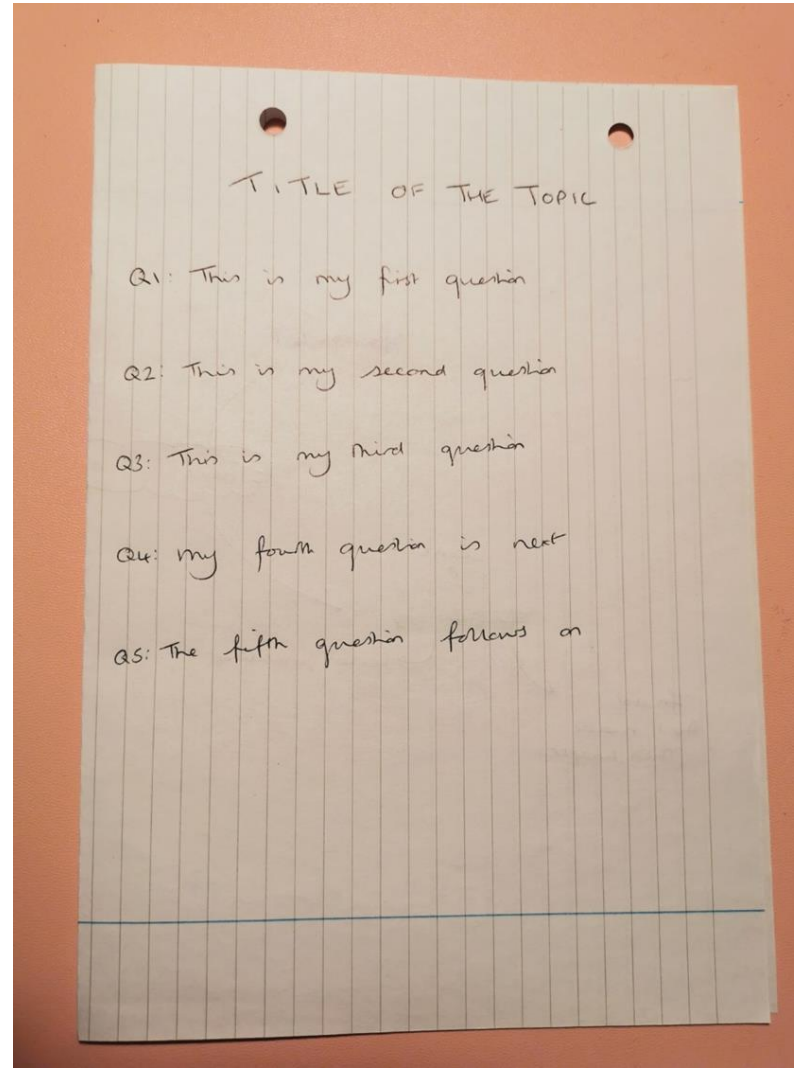 TITLE OF THE TOPIC
Q1: This is my first question
Q2: This is my second question
Q3: This is my third question
Q4: my fourth question is next
Q5: The fifth question follows on